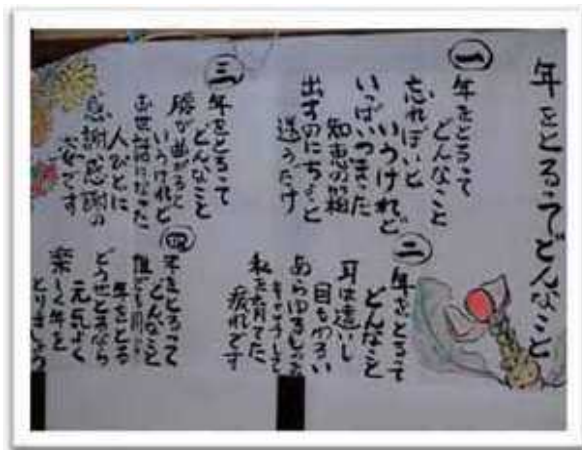 年をとるってどんなこと
一
年をとるって
どんなこと
忘れぽいと
いうけれど
いっぱいつまった
知恵の箱
出すのにちょっと
迷うだけ
二
年をとるって
どんなこと
耳は遠いし
目もわるい
あらゆるもの
私を育てた
疲れです
三
年をとるって
どんなこと
腰が曲がると
いうけれど
お世話になった
人びとに
感謝、感謝の
姿です
四
年をとるって
どんなこと
年をとる
どうせとるなら
元気よく
楽しく年を
とりましょう